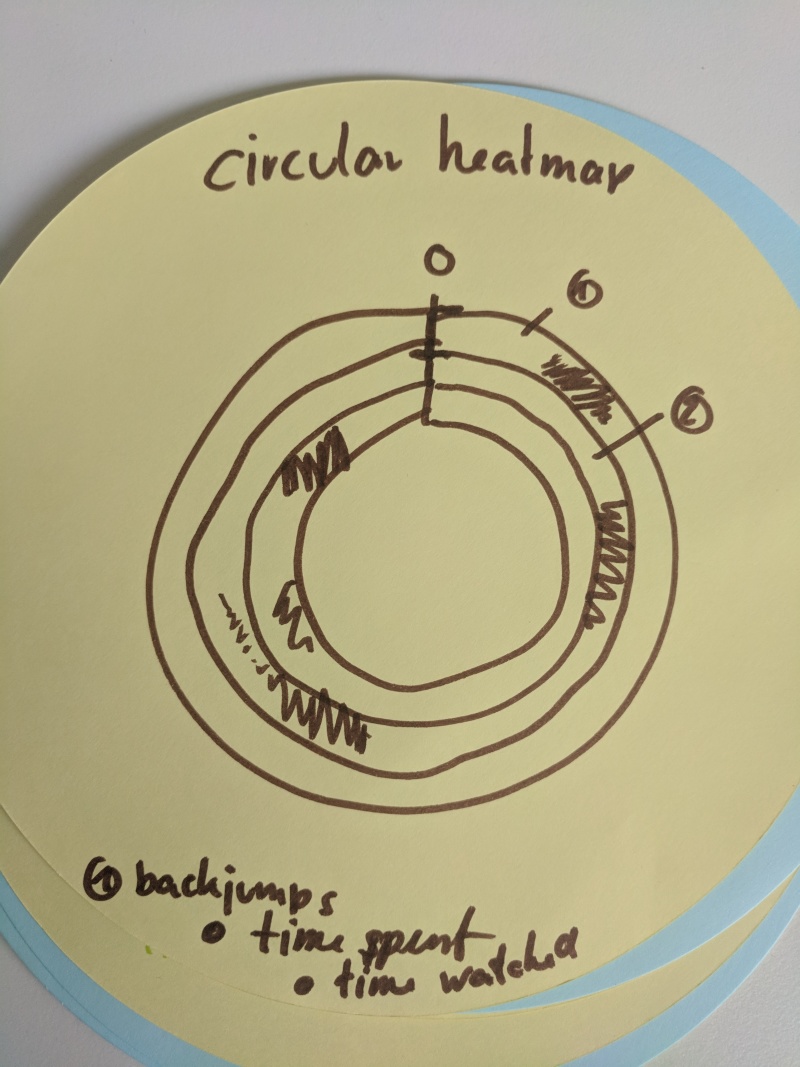 circular heatmap
0
①
②
backjumps
• time spent
• time watched